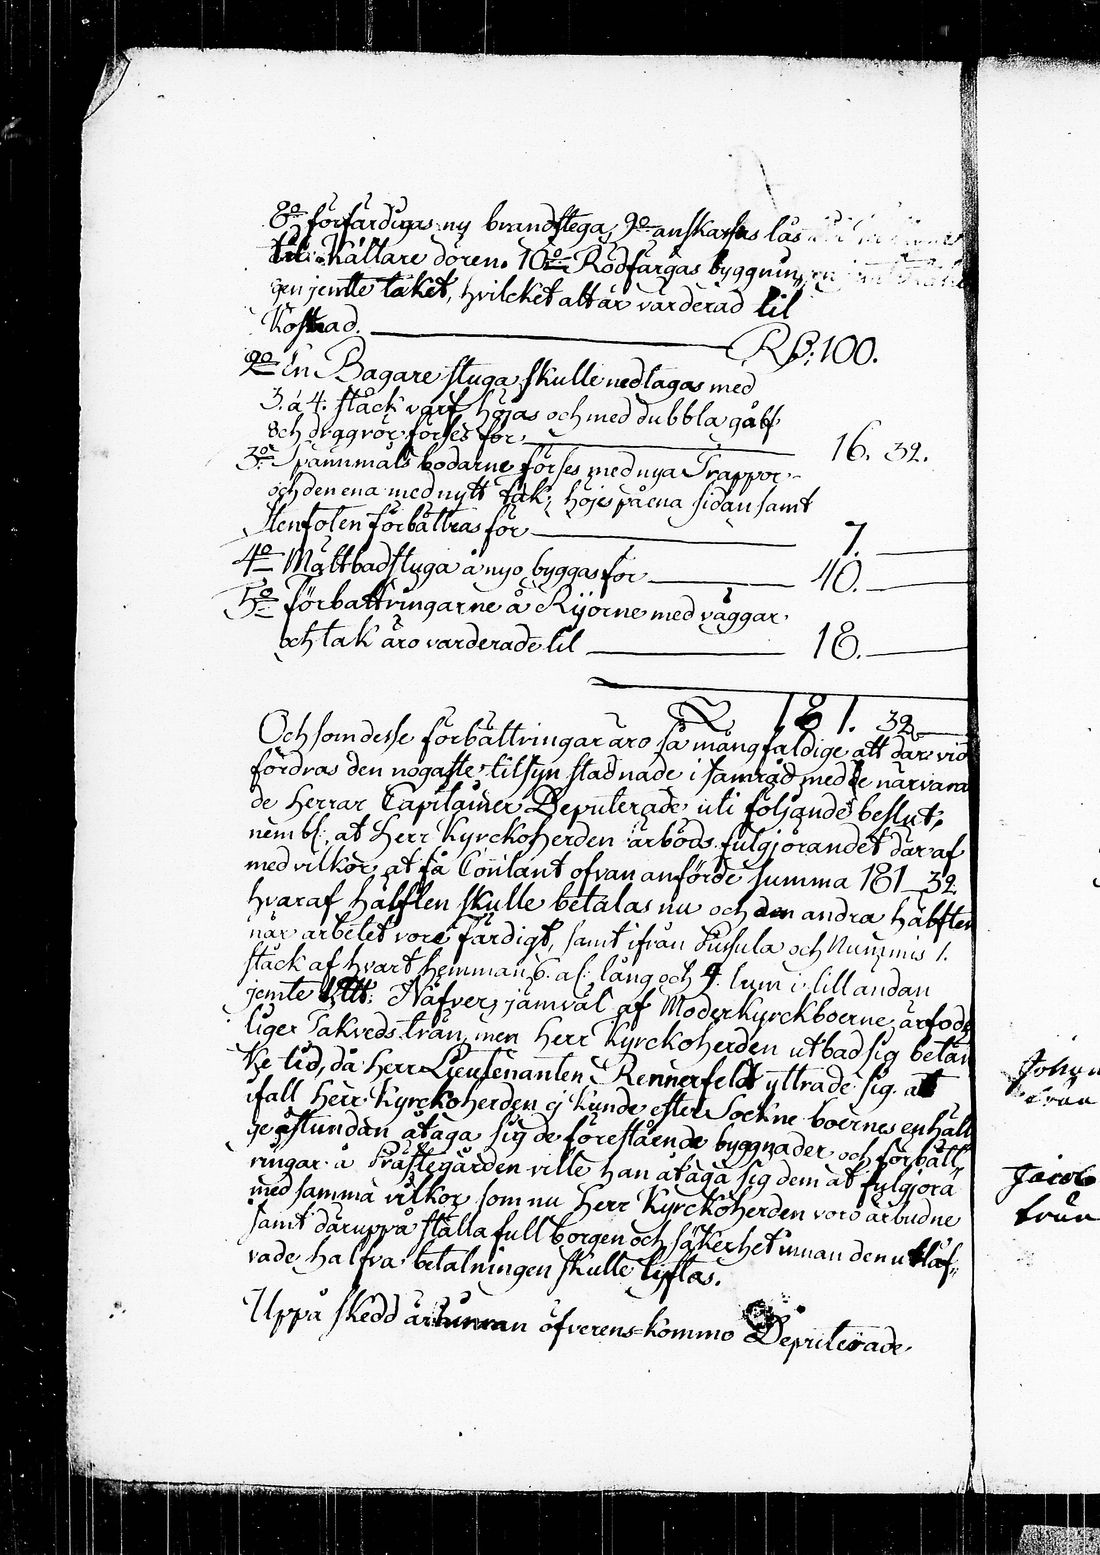 8o förfärdigas ny brandstega, 9o anskaffas lås
til Källare dören. 10o Rödfärgas byggnin
gen jemte taket, hvilcket alt är värderad til
Kostnad. Rß: 100.
2o En Bagare stuga skulle nedtagas med
3. à 4. stäck varf höjas och med dubbla gålf
och dyggvör förses för 16. 32.
3o Spannmåls bodarne förses med nya Trappor
och den ena med nytt tak, höjes på ena sidan samt
Stenfoten förbättras för 7.
4o Mältbadstuga å nyo byggas för 40.
5o förbättringarne å Rijorne med väggar
och tak äro värderade til 18.
181. 32
Och som desse förbättringar äro så mångfaldige att där vid
fordras den nogaste tilsyn stadnade i samråd med de närvaran
de Herrar Capitainer Deputerade uti följande beslut,
nembl: at Herr Kyrckoherden ärböds fulgjörandet däraf
med vilkor at få Contant ofvananförde summa 181_32
hvaraf hälften skulle betalas nu och den andra hälften
när arbetet vore färdigt, samt ifrån Pusula och Nummis 1.
stäck af hvart hemman 6. al: lång och 9. tum i lillandan
jemte Näfver, jämväl af Moderkyrckboerne ärfode
liger Takveds trän, men Herr Kyrckoherden utbad sig betän
ke tid, då Herr Lieutenanten Rennerfeldt yttrade sig at
ifall Herr Kyrckoherden ej kunde efter Sockne boernes enhäll
ge åstundan åtaga sig de förestående byggnader och förbätt
ringar å Prästegården ville han åtaga sig dem at fulgjöra
med samma vilkor som nu Herr Kyrckoherden voro ärbudne
samt däruppå ställa full borgen och säkerhet innan den utläf„
vade halfva betalningen skulle lyftas.
Uppå skedd ärhinnran öfverens=kommo Deputerade
Johan
Jacob